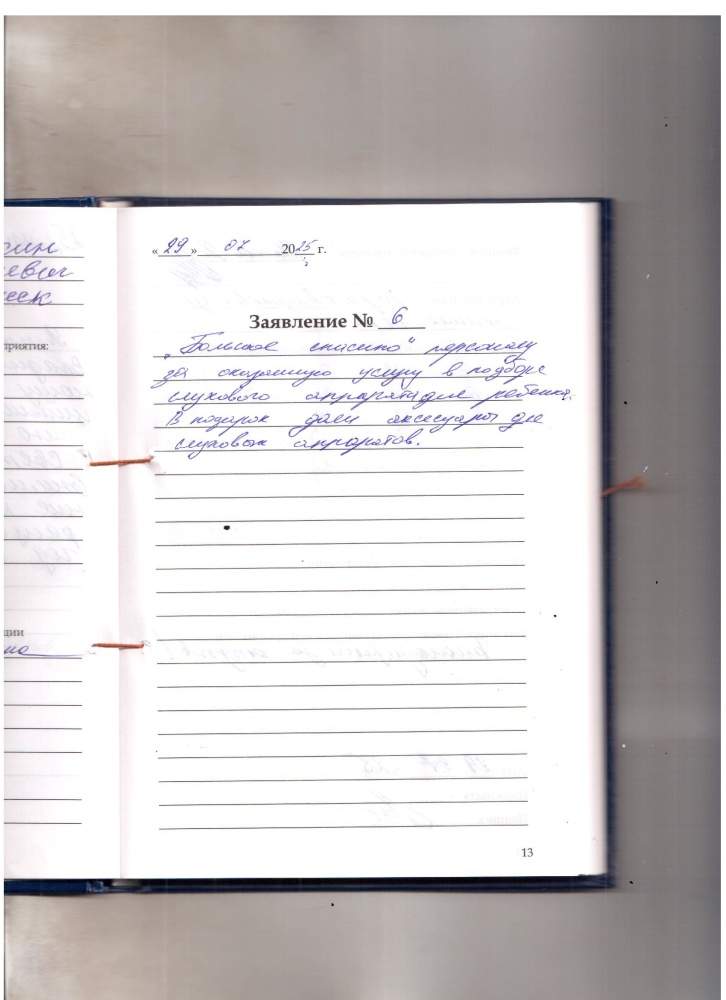 « 29 » 07 2025 г.
Заявление № 6
„Большое спасибо“ персоналу
за оказанную услугу в подборе
слухового аппарата для ребенка.
В подарок дали аксесуары для
слуховых аппаратов.
приятия:
ции
13